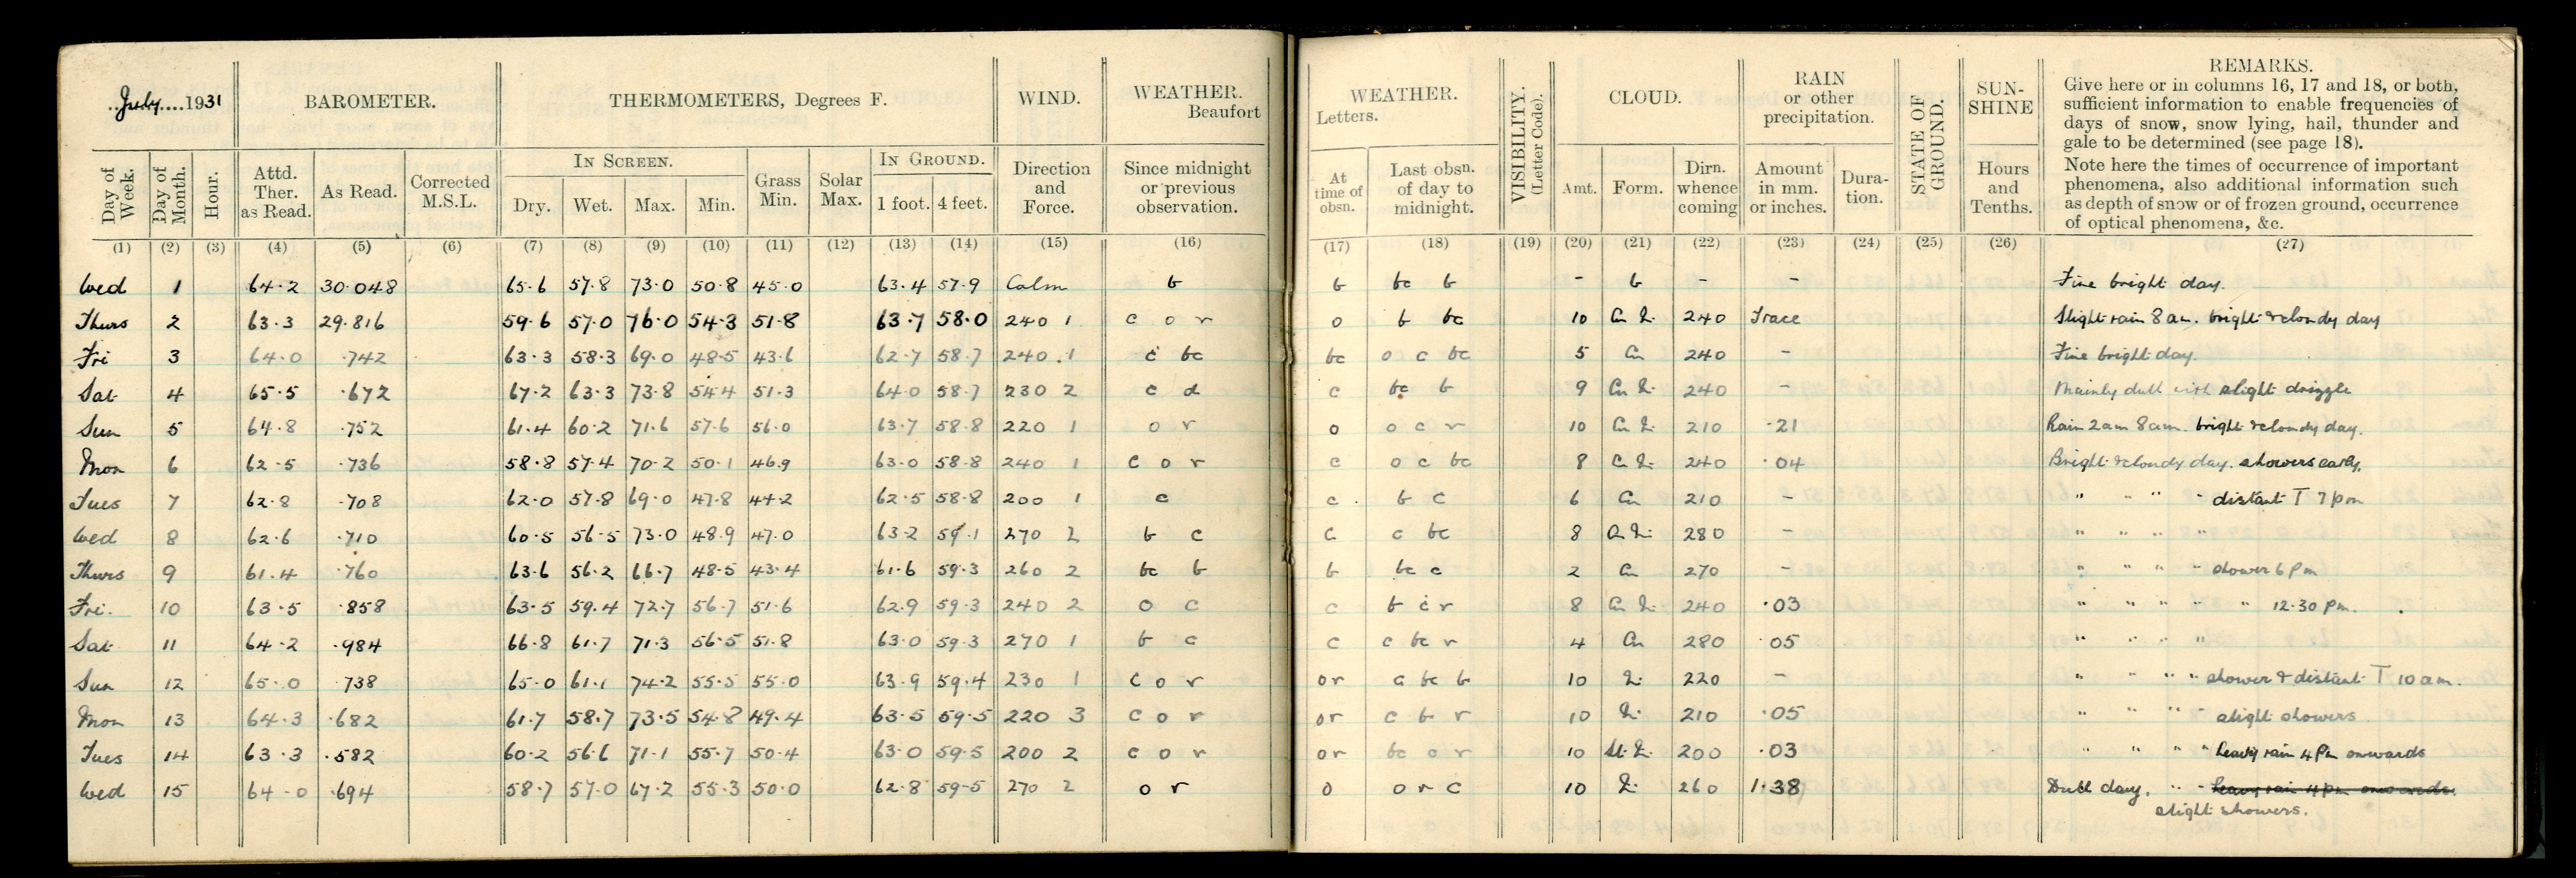 July 1931
BAROMETER.
THERMOMETERS, Degrees F.
WIND.
WEATHER.
Beaufort
WEATHER.
Letters.
VISIBILITY.
(Letter Code).
CLOUD.
RAIN
or other
precipitation.
STATE OF
GROUND.
SUN-
SHINE
REMARKS.
Give here or in columns 16, 17 and 18, or both,
sufficient information to enable frequencies of
days of snow, snow lying, hail, thunder and
gale to be determined (see page 18).
Note here the times of occurrence of important
phenomena, also additional information such
as depth of snow or of frozen ground, occurrence
of optical phenomena, &c.
Day of
Week.
Day of
Month.
Hour.
Attd.
Ther.
as Read.
As Read.
Corrected
M.S.L.
IN SCREEN.
Dry. Wet. Max. Min.
Grass
Min.
Solar
Max.
IN GROUND.
1 foot. 4 feet.
Direction
and
Force.
Since midnight
or previous
observation.
At
time of
obsn.
Last obsn.
of day to
midnight.
Amt. Form.
Dirn.
whence
coming
Amount
in mm.
or inches.
Dura-
tion.
Hours
and
Tenths.
(1) (2) (3) (4) (5) (6) (7) (8) (9) (10) (11) (12) (13) (14) (15) (16) (17) (18) (19) (20) (21) (22) (23) (24) (25) (26) (27)
Wed 1 64.2 30.048 65.6 57.8 73.0 50.8 45.0 63.4 57.9 Calm b b bc b - b - - Fine bright day.
Thurs 2 63.3 29.816 59.6 57.0 76.0 54.3 51.8 63.7 58.0 240 1 c o r o b bc 10 240 Trace Slight rain 8 am. bright & cloudy day
Fri 3 64.0 .742 63.3 58.3 69.0 48.5 43.6 62.7 58.7 240 1 c bc bc o c bc 5 Cu 240 - Fine bright day.
Sat 4 65.5 .672 67.2 63.3 73.8 54.4 51.3 64.0 58.7 230 2 c d c bc b 9 240 - Mainly dull with slight drizzle
Sun 5 64.8 .752 61.4 60.2 71.6 57.6 56.0 63.7 58.8 220 1 o r o o c r 10 210 .21 Rain 2 am 8 am. bright & cloudy day.
Mon 6 62.5 .736 58.8 57.4 70.2 50.1 46.9 63.0 58.8 240 1 c o r c o c bc 8 240 .04 Bright & cloudy day. showers early.
Tues 7 62.8 .708 62.0 57.8 69.0 47.8 44.2 62.5 58.8 200 1 c c b c 6 Cu 210 - " " " " distant T 7 pm
Wed 8 62.6 .710 60.5 56.5 73.0 48.9 47.0 63.2 59.1 270 2 b c c c bc 8 280 - " " " "
Thurs 9 61.4 .760 63.6 56.2 66.7 48.5 43.4 61.6 59.3 260 2 bc b b bc c 2 Cu 270 - " " " " shower 6 pm
Fri. 10 63.5 .858 63.5 59.4 72.7 56.7 51.6 62.9 59.3 240 2 o c c b c r 8 240 .03 " " " " " 12.30 pm.
Sat 11 64.2 .984 66.8 61.7 71.3 56.5 51.8 63.0 59.3 270 1 b c c c bc r 4 Cu 280 .05 " " " "
Sun 12 65.0 .738 65.0 61.1 74.2 55.5 55.0 63.9 59.4 230 1 c o r or c bc b 10 220 - " " " " shower & distant T 10 am.
Mon 13 64.3 .682 61.7 58.7 73.5 54.8 49.4 63.5 59.5 220 3 c o r or c b r 10 210 .05 " " " " slight showers
Tues 14 63.3 .582 60.2 56.6 71.1 55.7 50.4 63.0 59.5 200 2 c o r or bc o r 10 200 .03 " " " " heavy rain 4 pm onwards
Wed 15 64.0 .694 58.7 57.0 67.2 55.3 50.0 62.8 59.5 270 2 o r o o r c 10 260 1.38 Dull day. " " heavy rain 4 pm onwards.
slight showers.